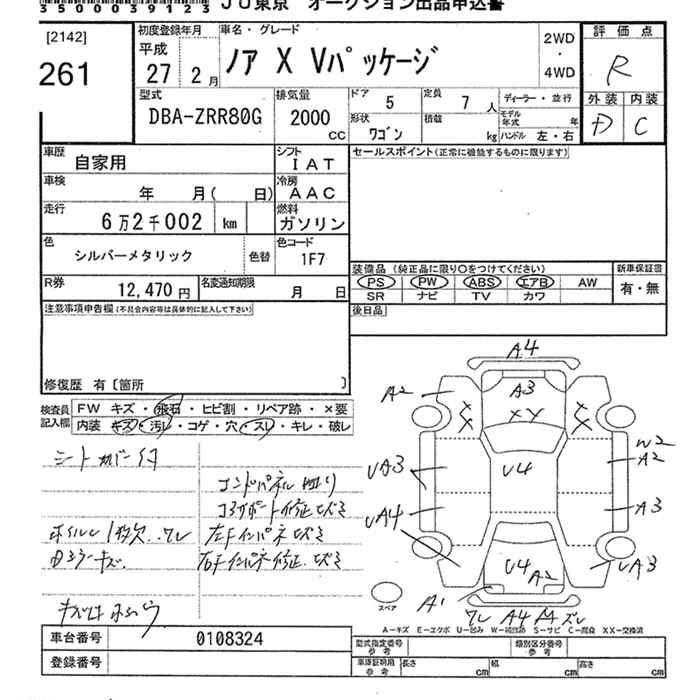 350003 9123 JU東京 オークション出品申込書
[2142]
261
初度登録年月
平成
27 2月
車名・グレード
ノア X Vパッケージ
2WD
・
4WD
評価点
R
外装 内装
D C
型式
DBA-ZRR80G
排気量
2000
CC
ドア 5
定員 7人
ディーラー・並行
形状 ワゴン
積載 kg
モデル年式 年
ハンドル 左・右
車歴 自家用
シフト IAT
セールスポイント(正常に機能するものに限ります)
車検 年 月( 日)
冷房 AAC
走行 6万2千002 km
燃料 ガソリン
色 シルバーメタリック
色替
色コード 1F7
装備品(純正品に限り○をつけてください)
新車保証書
PS PW ABS エアB AW
有・無
SR ナビ TV カワ
R券 12,470円
名変通知期限 月 日
後日品
注意事項申告欄(不具合内容等は具体的に記入して下さい)
修復歴 有〔箇所 〕
検査員記入欄
FW キズ・飛石・ヒビ割・リペア跡・×要
内装 キズ・汚レ・コゲ・穴・スレ・キレ・破レ
シートカバー付
コアサポート修正
左Fインパネ
右Fインパネ修正
A4
A2
A3
XX
XY
XX
W2
A2
UA3
U4
A3
UA4
UA3
U4
A2
A1
ワレ A4
スペア
A−キズ E−エクボ U−凹み W−補修跡 S−サビ C−腐食 XX−交換済
車台番号 0108324
登録番号
型式指定番号
参考
類別区分番号
参考
車庫証明用
参考
長さ cm
幅 cm
高さ cm